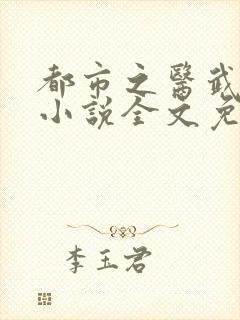 都市之醫武
小說全文免
李玉君